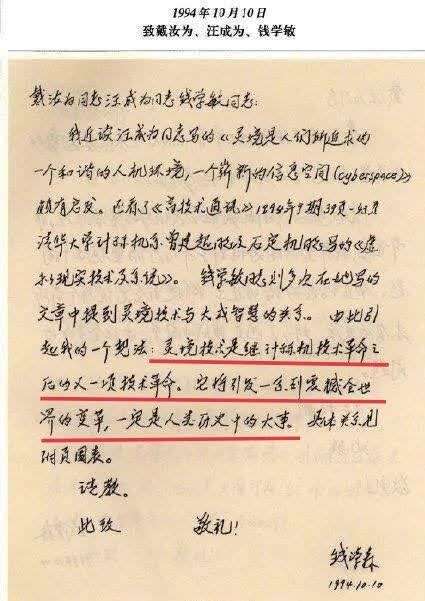 1994年10月10日
致戴汝为、汪成为、钱学敏
戴汝为同志汪成为同志钱学敏同志:
我近读汪成为同志写的《灵境是人们所追求的
一个和谐的人机环境,一个崭新的信息空间(cyberspace)》
颇有启发。已看了《高技术通讯》1994年9期39页-
清华大学计算机系曾建超 及石定机 写的《虚
拟现实技术及系统》。钱学敏 则多次在她写的
文章中提到灵境技术与大成智慧的关系。由此引
起我的一个想法:灵境技术是继计算机技术革命之
后的又一项技术革命。它将引发一系列震撼全世
界的变革,一定是人类历史中的大事。具体关系见
附页图表。
请教。
此致 敬礼!
钱学森
1994.10.10